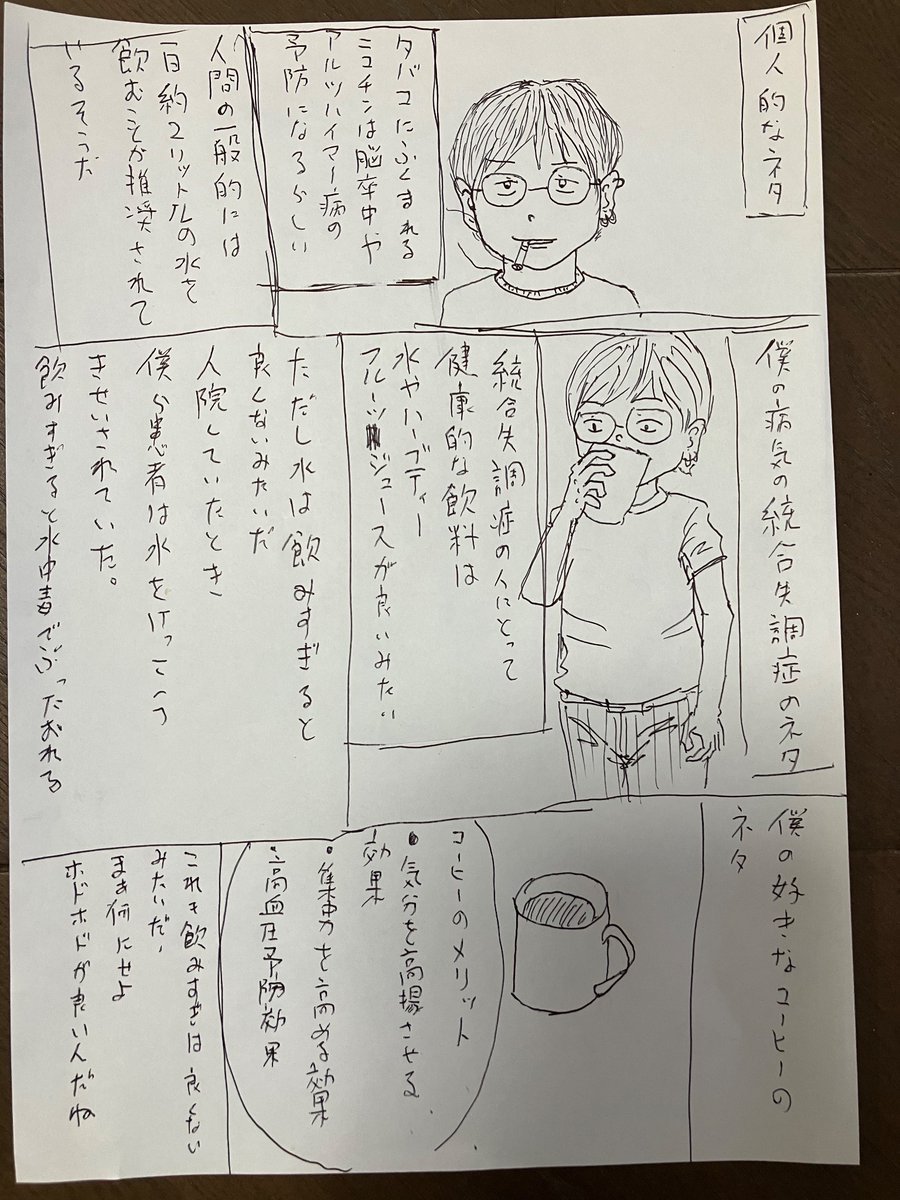 個人的なネタ
タバコにふくまれる
ニコチンは脳卒中や
アルツハイマー病の
予防になるらしい
人間の一般的には
一日約2リットルの水を
飲むことが推奨されて
いるそうだ
僕の病気の統合失調症のネタ
統合失調症の人にとって
健康的な飲料は
水やハーブティー
フルーツジュースが良いみたい
ただし水は飲みすぎると
良くないみたいだ
入院していたとき
僕ら患者は水をけっこう
きせいされていた。
飲みすぎると水中毒でぶったおれる
僕の好きなコーヒーの
ネタ
コーヒーのメリット
・気分を高揚させる
効果
・集中力を高める効果
・高血圧予防効果
これも飲みすぎは良くない
みたいだ、
まぁ何にせよ
ホドホドが良いんだね